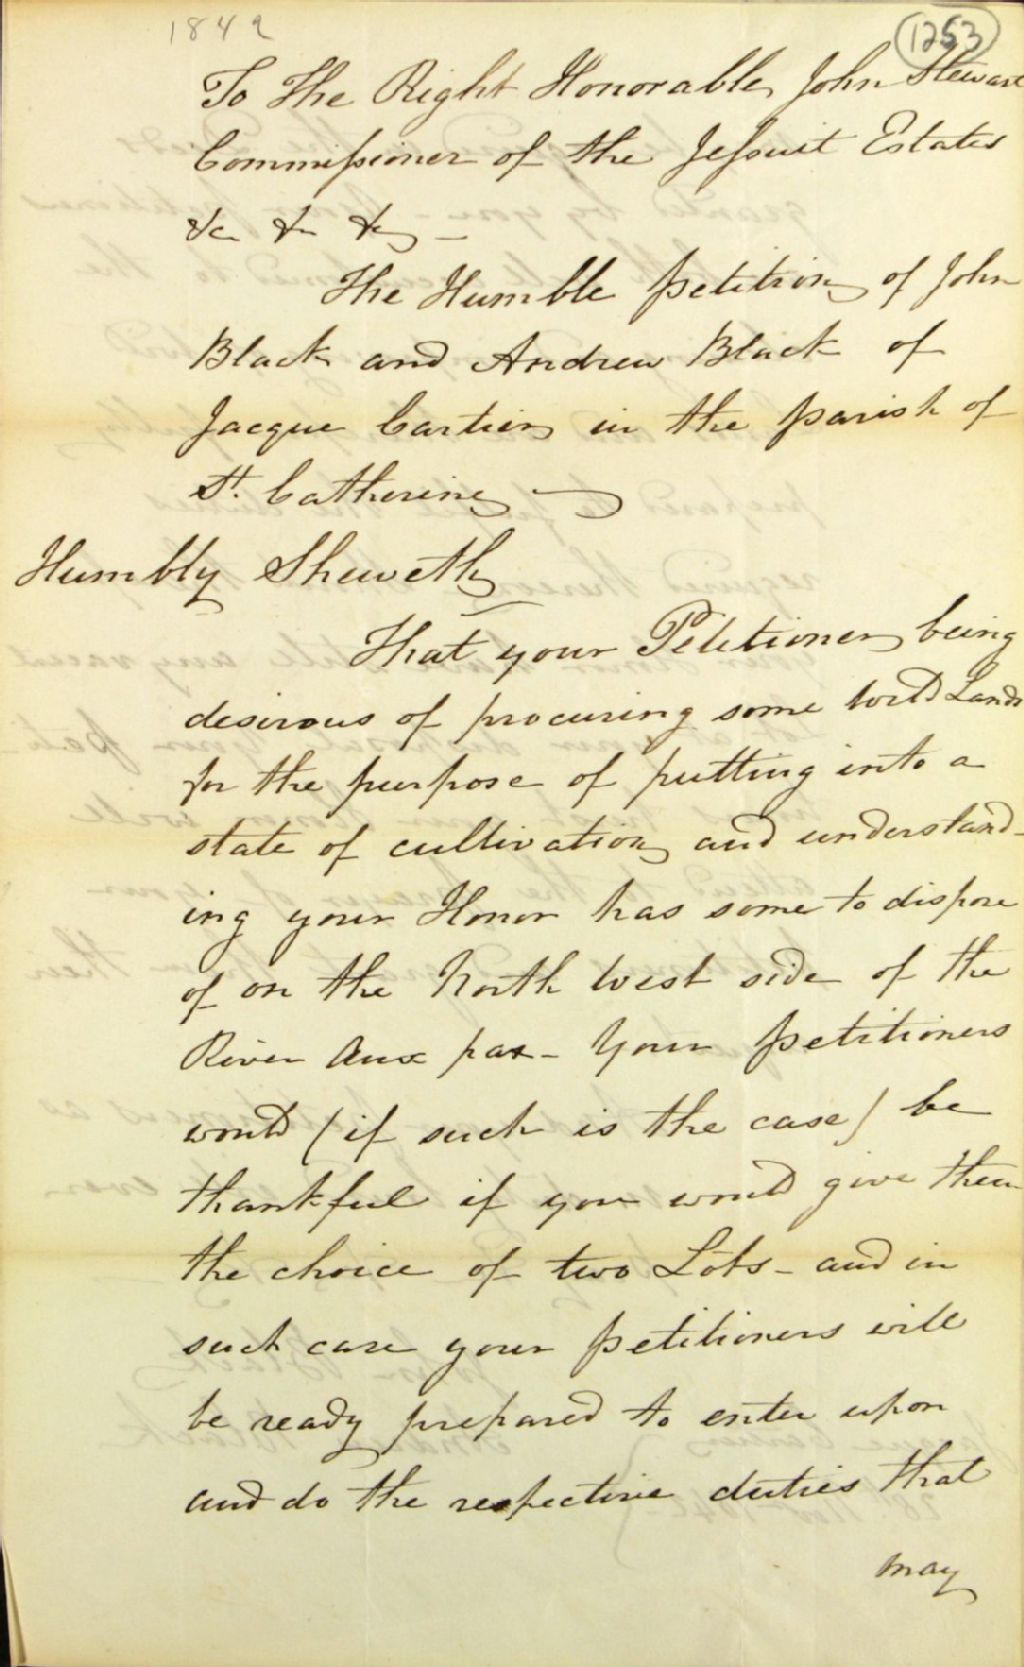 1842
1253
To The Right Honorable John Stewart
Commissioner of the Jesuit Estates
&c &c &c –
The Humble petition of John
Black and Andrew Black of
Jacque Cartier in the parish of
St. Catherine
Humbly Sheweth
That your Petitioners being
desirous of procuring some wild Lands
for the purpose of putting into a
state of cultivation and understand-
ing your Honor has some to dispose
of on the North West side of the
River Aux pas – Your petitioners
would (if such is the case) be
thankful if you would give them
the choice of two Lots – and in
such case your petitioners will
be ready prepared to enter upon
and do the respective duties that
may